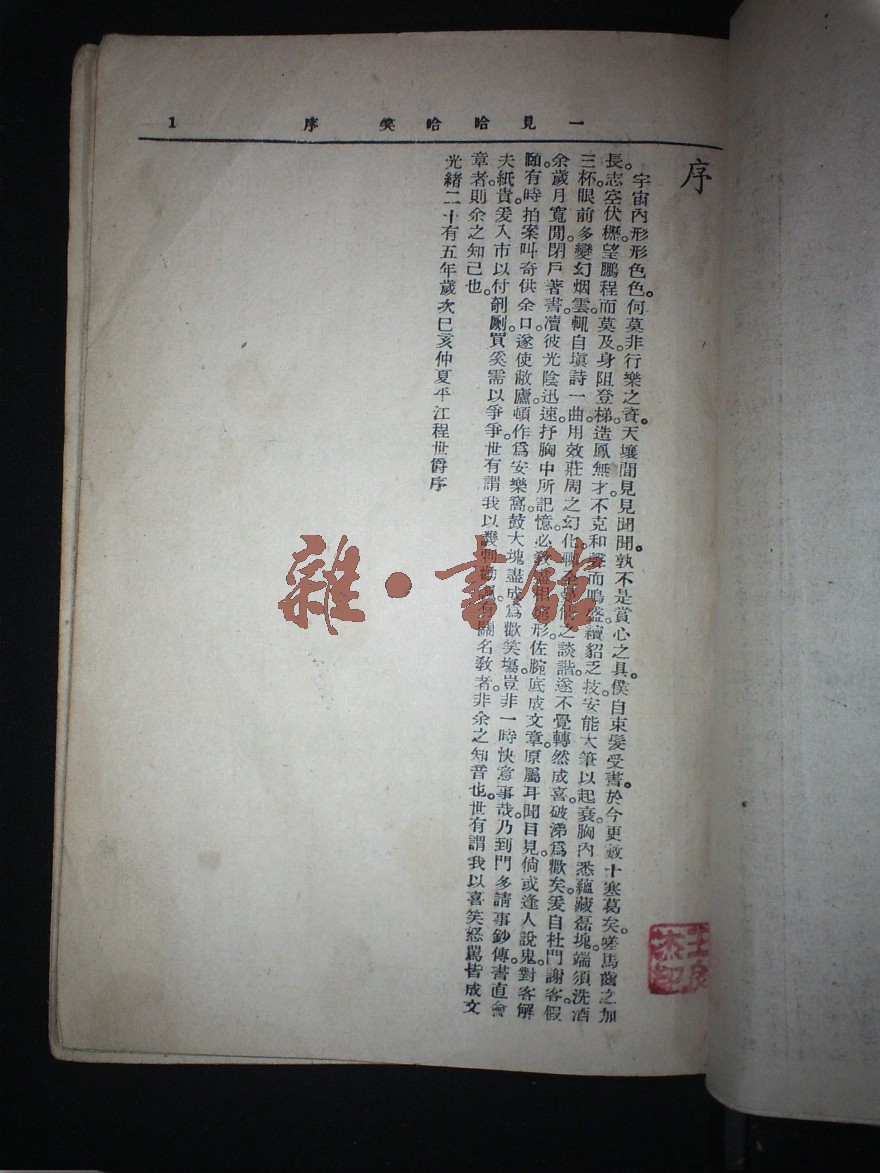 一見哈哈笑 序 1
序
宇宙內形形色色。何莫非行樂之資。天壤間見見聞聞。孰不是賞心之具。僕自束髮受書。於今更數十寒葛矣。嗟馬齒之加
長。志空伏櫪。望鵬程而莫及。身阻登梯。造鳳無才。不克和聲而鳴盛。續貂乏技。安能大筆以起衰。胸內悉蘊藏磊塊。端須洗酒
三杯。眼前多變幻烟雲。輒自塡詩一曲。用效莊周之幻化。聊之談諧。遂不覺轉然成喜。破涕爲歡矣。爰自杜門謝客。假
余歲月寬閒。閉戶著書。凟彼光陰迅速。抒胸中所記憶。必敎形。佐腕底成文章。原屬耳聞目見。倘或逢人說鬼。對客解
頤。有時拍案叫奇。供余口。遂使敝廬頓作爲安樂窩。鼓大塊盡成爲歡笑塲。豈非一時快意事哉。乃到門多請事鈔傳。書直會
夫紙貴。爰入市以付剞劂。買奚需以爭爭。世有謂我以譏有關名敎者。非余之知音也。世有謂我以喜笑怒駡皆成文
章者。則余之知己也。
光緒二十有五年歲次己亥仲夏平江程世爵序
雜·書館